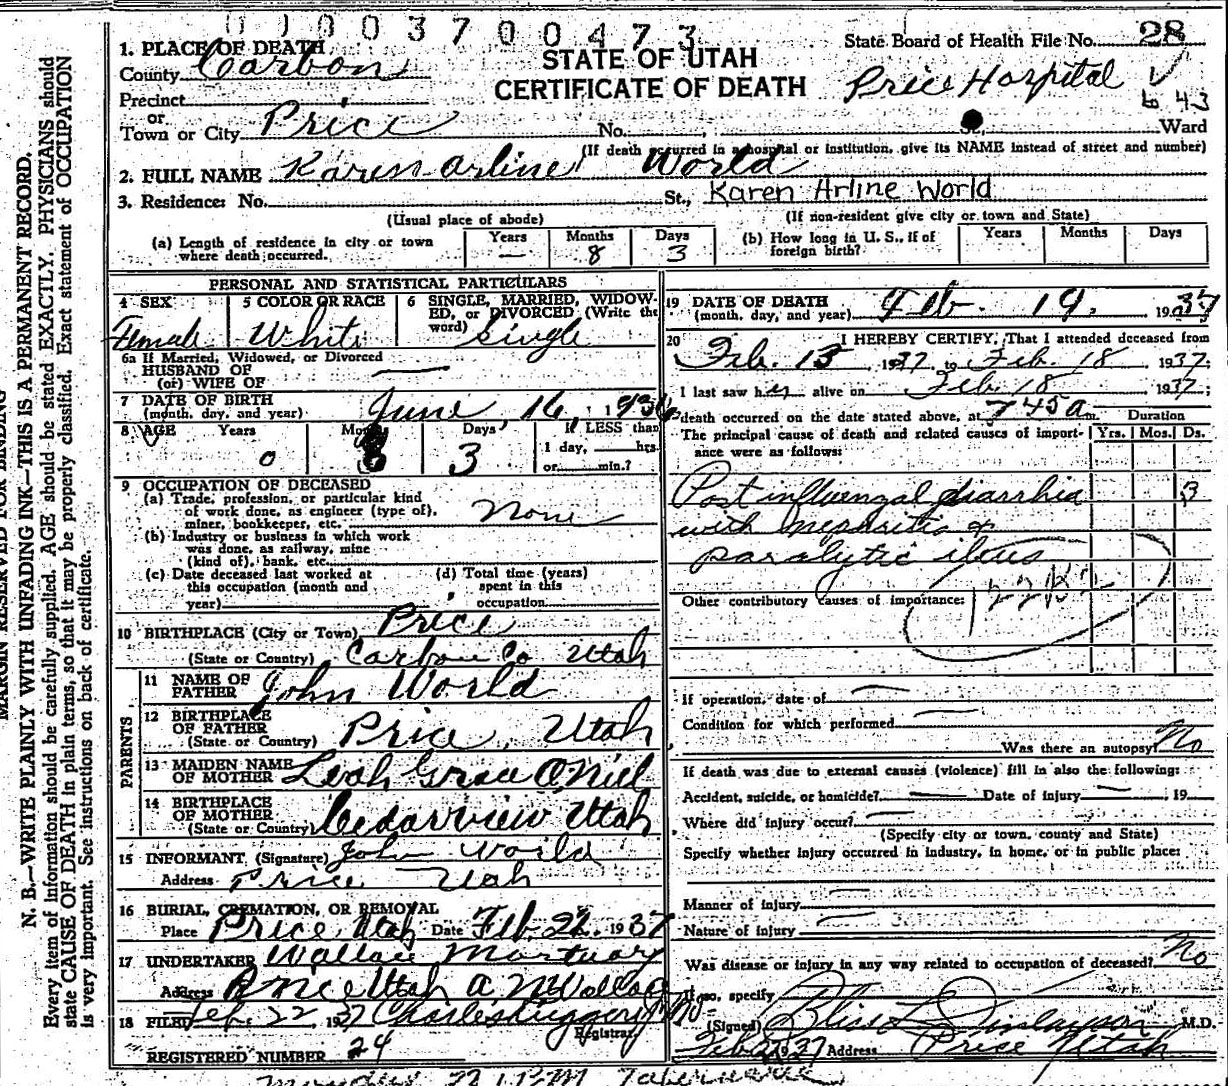 0 1 0 0 3 7 0 0 4 7 3
STATE OF UTAH
CERTIFICATE OF DEATH
State Board of Health File No. 28
Price Hospital
1. PLACE OF DEATH
County Carbon
Precinct
or
Town or City Price No. St., Ward
(If death occurred in a hospital or institution, give its NAME instead of street and number)
2. FULL NAME Karen Arline World
3. Residence: No. St., Karen Arline World
(Usual place of abode) (If non-resident give city or town and State)
(a) Length of residence in city or town where death occurred. Years — Months 8 Days 3
(b) How long in U. S., if of foreign birth? Years Months Days
PERSONAL AND STATISTICAL PARTICULARS
4 SEX Female
5 COLOR OR RACE White
6 SINGLE, MARRIED, WIDOWED, or DIVORCED (Write the word) Single
6a If Married, Widowed, or Divorced
HUSBAND OF
(or) WIFE OF
7 DATE OF BIRTH
(month, day, and year) June 16, 1936
8 AGE Years 0 Months 8 Days 3 If LESS than
1 day, hrs.
or min.?
9 OCCUPATION OF DECEASED
(a) Trade, profession, or particular kind
of work done, as engineer (type of),
miner, bookkeeper, etc. None
(b) Industry or business in which work
was done, as railway, mine
(kind of), bank, etc.
(c) Date deceased last worked at
this occupation (month and
year)
(d) Total time (years)
spent in this
occupation
10 BIRTHPLACE (City or Town) Price
(State or Country) Carbon Co Utah
PARENTS
11 NAME OF FATHER John World
12 BIRTHPLACE OF FATHER
(State or Country) Price, Utah
13 MAIDEN NAME OF MOTHER Leah Grace O'Niel
14 BIRTHPLACE OF MOTHER
(State or Country) Cedarview Utah
15 INFORMANT (Signature) John World
Address Price Utah
16 BURIAL, CREMATION, OR REMOVAL
Place Price, Utah Date Feb. 22, 1937
17 UNDERTAKER Wallace Mortuary
Address Price Utah
18 FILED Feb. 22 1937
Registrar
REGISTERED NUMBER 24
19 DATE OF DEATH
(month, day, and year) Feb. 19, 1937
20 I HEREBY CERTIFY, That I attended deceased from
Feb. 13 1937 to Feb. 18 1937;
I last saw her alive on Feb 18 1937;
death occurred on the date stated above, at 7 45 a m. Duration
The principal cause of death and related causes of importance were as follows: Yrs. Mos. Ds.
Post influenzal diarrhia 3
with nephritis &
paralytic ileus
Other contributory causes of importance:
If operation, date of
Condition for which performed
Was there an autopsy? No
If death was due to external causes (violence) fill in also the following:
Accident, suicide, or homicide? Date of injury 19
Where did injury occur?
(Specify city or town, county and State)
Specify whether injury occurred in industry, in home, or in public place:
Manner of injury
Nature of injury
Was disease or injury in any way related to occupation of deceased? No
If so, specify
(Signed) Bliss L Finlayson M.D.
1937 Address Price Utah
MARGIN RESERVED FOR BINDING
N. B.—WRITE PLAINLY WITH UNFADING INK—THIS IS A PERMANENT RECORD.
Every item of information should be carefully supplied. AGE should be stated EXACTLY. PHYSICIANS should
state CAUSE OF DEATH in plain terms, so that it may be properly classified. Exact statement of OCCUPATION
is very important. See instructions on back of certificate.